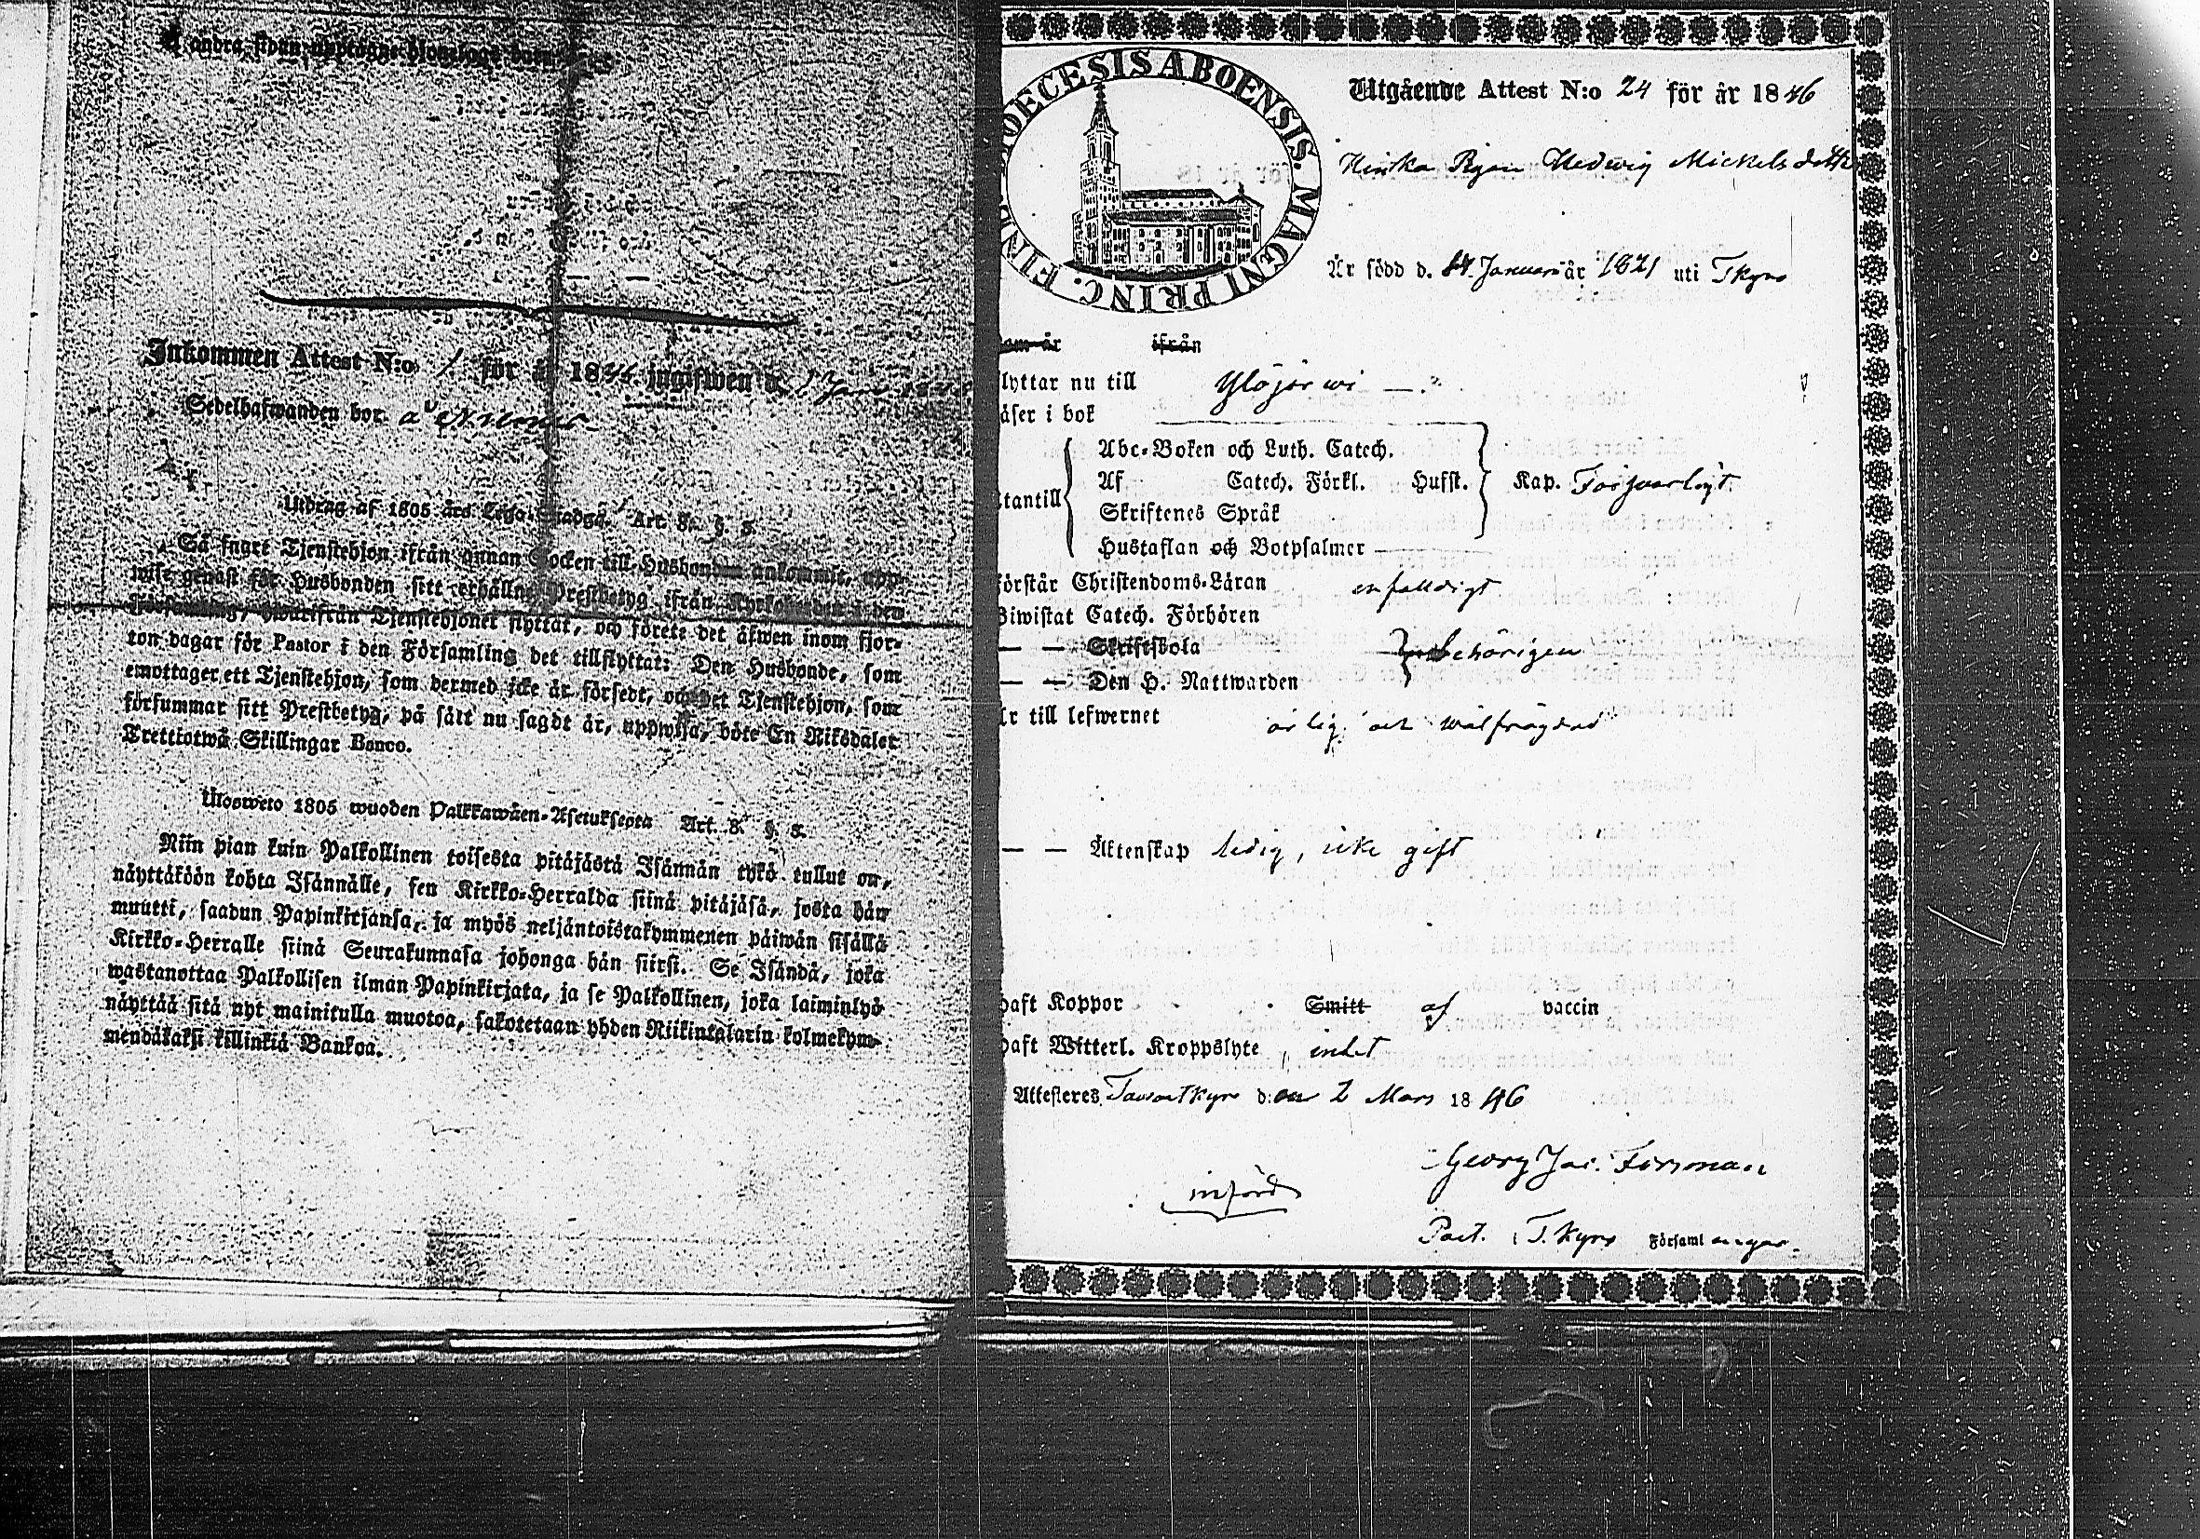 å andra sidan
Inkommen Attest N:o 1 för år 1846 ingifwen d. 1 Jan
Sedelhafwanden bor å
Utdrag af 1805 års Lego-Stadga. Art. 8. §. 8.
Så snart Tjenstehjon ifrån annan Socken till Husbonden ankommit, upp-
wise genast för Husbonden sitt erhållne Prestbetyg ifrån Kyrkoherden i den
Församling, hwarifrån Tjenstehjonet flyttat, och förete det äfwen inom fjor-
ton dagar för Pastor i den Församling det tillflyttat: Den Husbonde, som
emottager ett Tjenstehjon, som dermed icke är försedt, och det Tjenstehjon, som
försummar sitt Prestbetyg, på sätt nu sagdt är, uppwisa, böte En Riksdaler
Trettiotwå Skillingar Banco.
Ulosweto 1805 wuoden Palkkawäen-Asetuksesta Art. 8. §. 8.
Niin pian kuin Palkollinen toisesta pitäjästä Isännän tykö tullut on,
näyttäköön kohta Isännälle, sen Kirkko-Herralda siinä pitäjäsä, josta hän
muutti, saadun Papinkirjansa, ja myös neljäntoistakymmenen päiwän sisällä
Kirkko-Herralle siinä Seurakunnasa johonga hän siirsi. Se Isändä, joka
wastanottaa Palkollisen ilman Papinkirjata, ja se Palkollinen, joka laiminlyö
näyttää sitä nyt mainitulla muotoa, sakotetaan yhden Riikintalarin kolmekym-
mendäkaksi killinkiä Bankoa.
DIOECESIS ABOENSIS. MAGNI PRINC. FINL.
Utgående Attest N:o 24 för år 1846
Pigan Hedwig Mickelsdotter
Är född d. Januari år 1821 uti Tkyro
som är ifrån
lyttar nu till Ylöjärwi
äser i bok
Abc-Boken och Luth. Catech.
tantill Af Catech. Förkl. Husst. Kap. Försvarligt
Skriftenes Språk
Hustaflan och Botpsalmer
örstår Christendoms-Läran enfalldigt
Biwistat Catech. Förhören
— — Skriftskola behörigen
— — Den H. Nattwarden
Är till lefwernet ärlig och wälfrägdad
— — Äktenskap ledig, icke gift
haft Koppor Smitt af vaccin
haft Witterl. Kroppslyte, intet
Attesteres Tavastkyro d:en 2 Mars 1846
Georg Jac. Forsman
införd
Past. i T. kyro Församlingar.